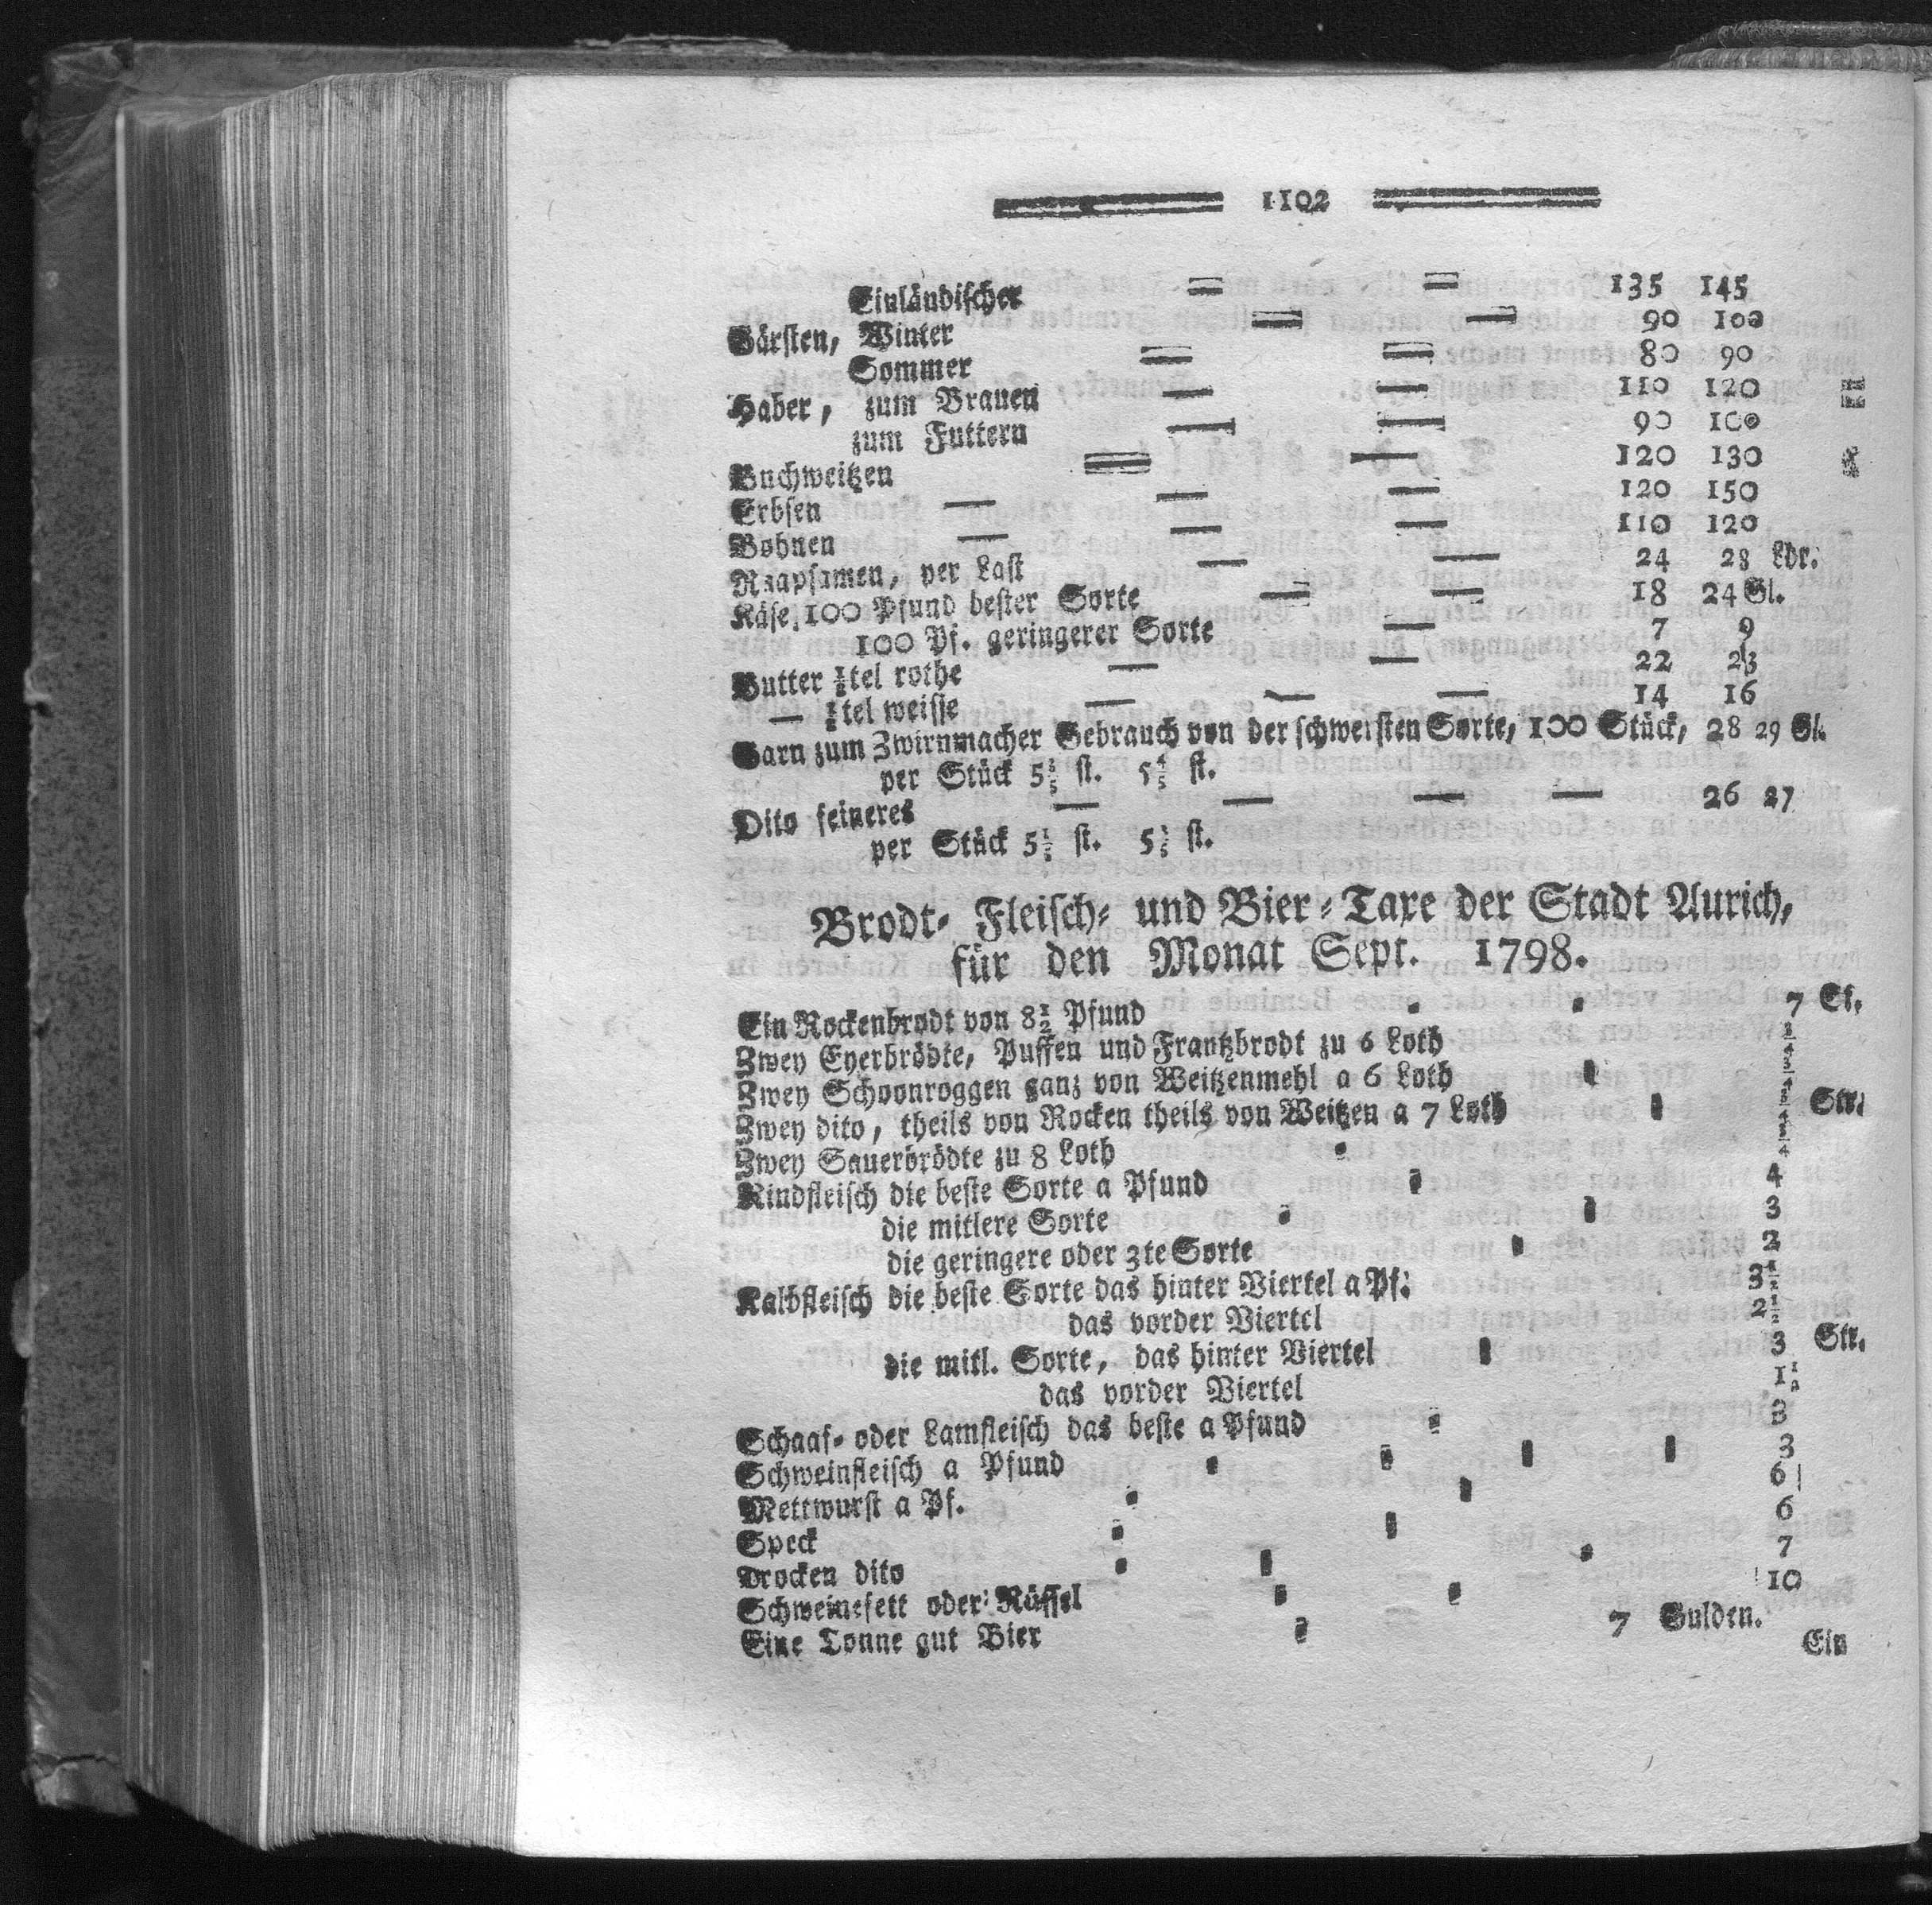 1102
Einländischer — — 135 145
Gärsten, Winter — — 90 100
Sommer — — 80 90
Haber, zum Brauen — — 110 120
zum Futtern — — 90 100
Buchweitzen — — 120 130
Erbsen — — — 120 150
Bohnen — — — 110 120
Raapsamen, per Last — — 24 28 Ldr.
Käse, 100 Pfund bester Sorte — — 18 24 Gl.
100 Pf. geringerer Sorte — 7 9
Butter ½tel rothe — — 22 23
— ½tel weisse — — — 14 16
Garn zum Zwirnmacher Gebrauch von der schwersten Sorte, 100 Stück, 28 29 Gl.
per Stück 5⅗ st. 5⅘ st.
Dito feineres — — — — 26 27
per Stück 5⅕ st. 5⅖ st.
Brodt- Fleisch- und Bier-Taxe der Stadt Aurich,
für den Monat Sept. 1798.
Ein Rockenbrodt von 8½ Pfund 7 St.
Zwey Eyerbrödte, Puffen und Frantzbrodt zu 6 Loth
Zwey Schoonroggen ganz von Weitzenmehl a 6 Loth
Zwey dito, theils von Rocken theils von Weitzen a 7 Loth Str.
Zwey Sauerbrödte zu 8 Loth
Rindfleisch die beste Sorte a Pfund 4
die mitlere Sorte 3
die geringere oder 3te Sorte 2
Kalbfleisch die beste Sorte das hinter Viertel a Pf. 3½
das vorder Viertel 2½
die mitl. Sorte, das hinter Viertel 3 Str.
das vorder Viertel 1½
Schaaf- oder Lamfleisch das beste a Pfund 3
Schweinfleisch a Pfund 3
Mettwurst a Pf. 6
Speck 6
Drocken dito 7
Schweinefett oder Rüssel 10
Eine Tonne gut Bier 7 Gulden.
Ein